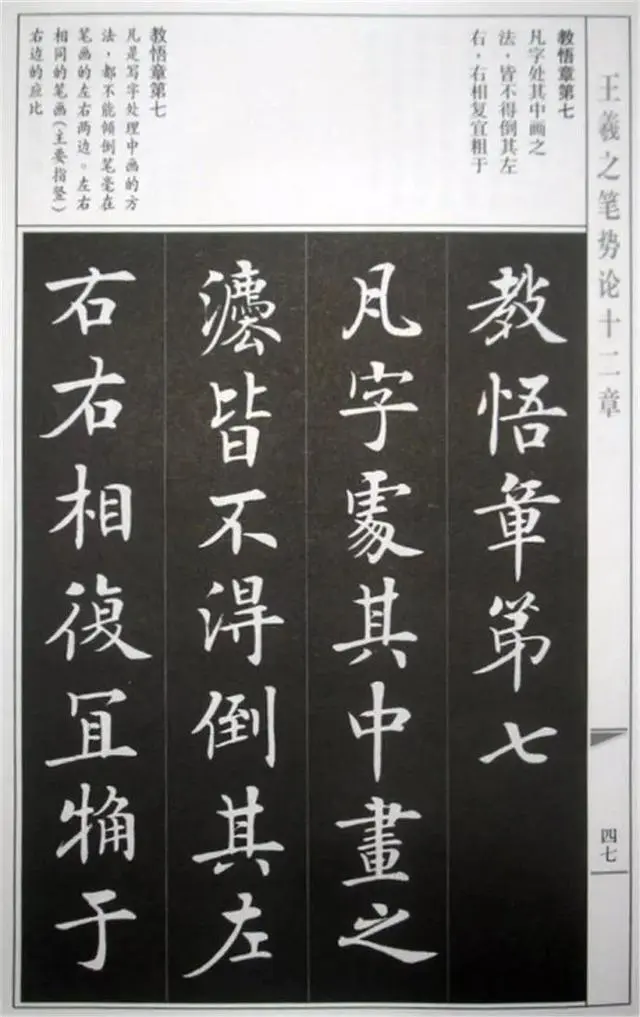 王羲之笔势论十二章
四七
教悟章第七
凡字处其中画之
法，皆不得倒其左
右，右相复宜粗于
教悟章第七
凡是写字处理中画的方
法，都不能倾倒笔毫在
笔画的左右两边。左右
相同的笔画（主要指竖）
右边的应比
教悟章第七
凡字處其中畫之
灋皆不得倒其左
右右相復宜觕于